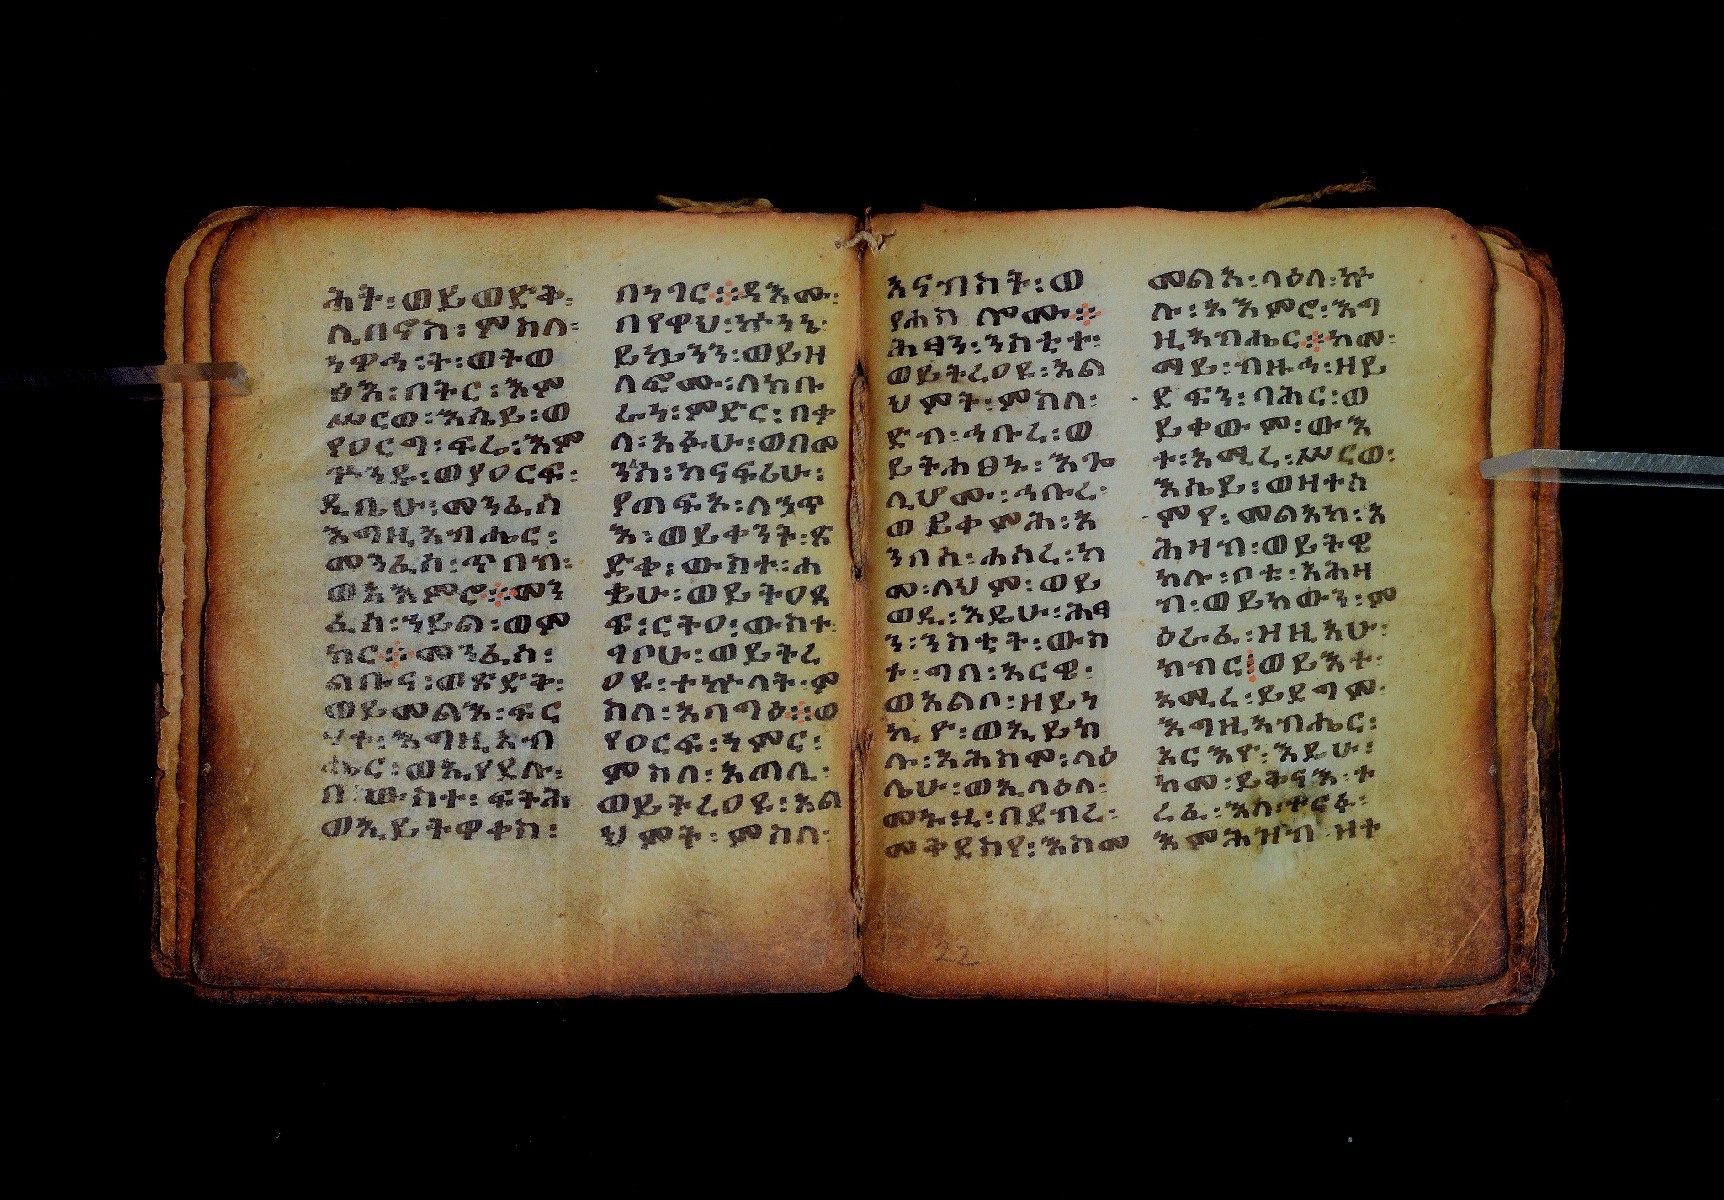 ሕት፡ወይወድቅ፡
ሊበኖስ፡ምስለ፡
ንዋኅ፡ት፡ወትወ
ፅእ፡በትር፡እም
ሥርወ፡እሴይ፡ወ
የዐርግ፡ፍሬ፡እም
ጕንዱ፡ወያዐርፍ፡
ዲቤሁ፡መንፈስ
እግዚአብሔር፡
መንፈስ፡ጥበብ፡
ወአእምሮ፡፡መን
ፈስ፡ኀይል፡ወም
ክር፡፡መንፈሰ፡
ልቡና፡ወጽድቅ፡
ወይመልእ፡ፍር
ሃተ፡እግዚአብ
ሔር፡ወኢያደሉ፡
በ ውስተ፡ፍትሕ
ወኢይትዋቀስ፡
በነገር፡፡ዳእሙ፡
በየዋህ፡ኵነኔ፡
ይኴንን፡ወይዘ
ለፎሙ፡ለከቡ
ራን፡ምድር፡በቀ
ለ፡አፉሁ፡ወበመ
ንፈሰ፡ከናፍሪሁ፡
ያጠፍኦ፡ለኃጥ
እ፡ወይቀንት፡ጽ
ድቀ፡ውስተ፡ሐ
ቌሁ፡ወይትዐፀ
ፍ፡ርትዐ፡ውስተ
ገቦሁ፡ወይትረ
ዐዩ፡ተኵላት፡ም
ስለ፡አባግዕ፡፡ወ
የዐርፍ፡ነምር፡
ምስለ፡አጠሊ፡
ወይትረዐይ፡እል
ህምት፡ምስለ፡
አናብስት፡ወ
የሐስ ሎሙ፡፡
ሕፃን፡ንስቲተ፡
ወይትረዐዩ፡አል
ህምት፡ምስለ፡
ድብ፡ኅቡረ፡ወ
ይትሐፀኑ፡እጐ
ሊሆሙ፡ኅቡረ፡
ወይቀምሕ፡አ
ንበሳ፡ሐሰረ፡ከ
መ፡ላህም፡ወይ
ወዲ፡እዴሁ፡ሕፃ
ን፡ንስቲት፡ውስ
ተ፡ግበ፡አርዌ፡
ወአልቦ፡ዘይነ
ኪዮ፡ወኢይክ
ሉ፡አሕስሞ፡ላዕ
ሌሁ፡ወኢላዕለ፡
መኑሂ፡በደብረ፡
መቅደስየ፡እስመ
መልአ፡ላዕለ፡ኵ
ሉ፡አእምሮ፡እግ
ዚአብሔር፡፡ከመ፡
ማይ፡ብዙኅ፡ዘይ
ደፍን፡ባሕር፡ወ
ይቀውም፡ውእ
ተ፡አሚረ፡ሥርወ፡
እሴይ፡ወዘተስ
ምየ፡መልአከ፡አ
ሕዛብ፡ወይትዌ
ከሉ፡ቦቱ፡አሕዛ
ብ፡ወይከውን፡ም
ዕራፈ፡ዘዚአሁ፡
ክብር፡ወይእተ፡
አሚረ፡ይደግም፡
እግዚአብሔር፡
አርእዮ፡እዴሁ፡
ከመ፡ይቅናእ፡ተ
ረፈ፡እለ፡ተርፉ፡
እምሕዝብ ዘተ
22